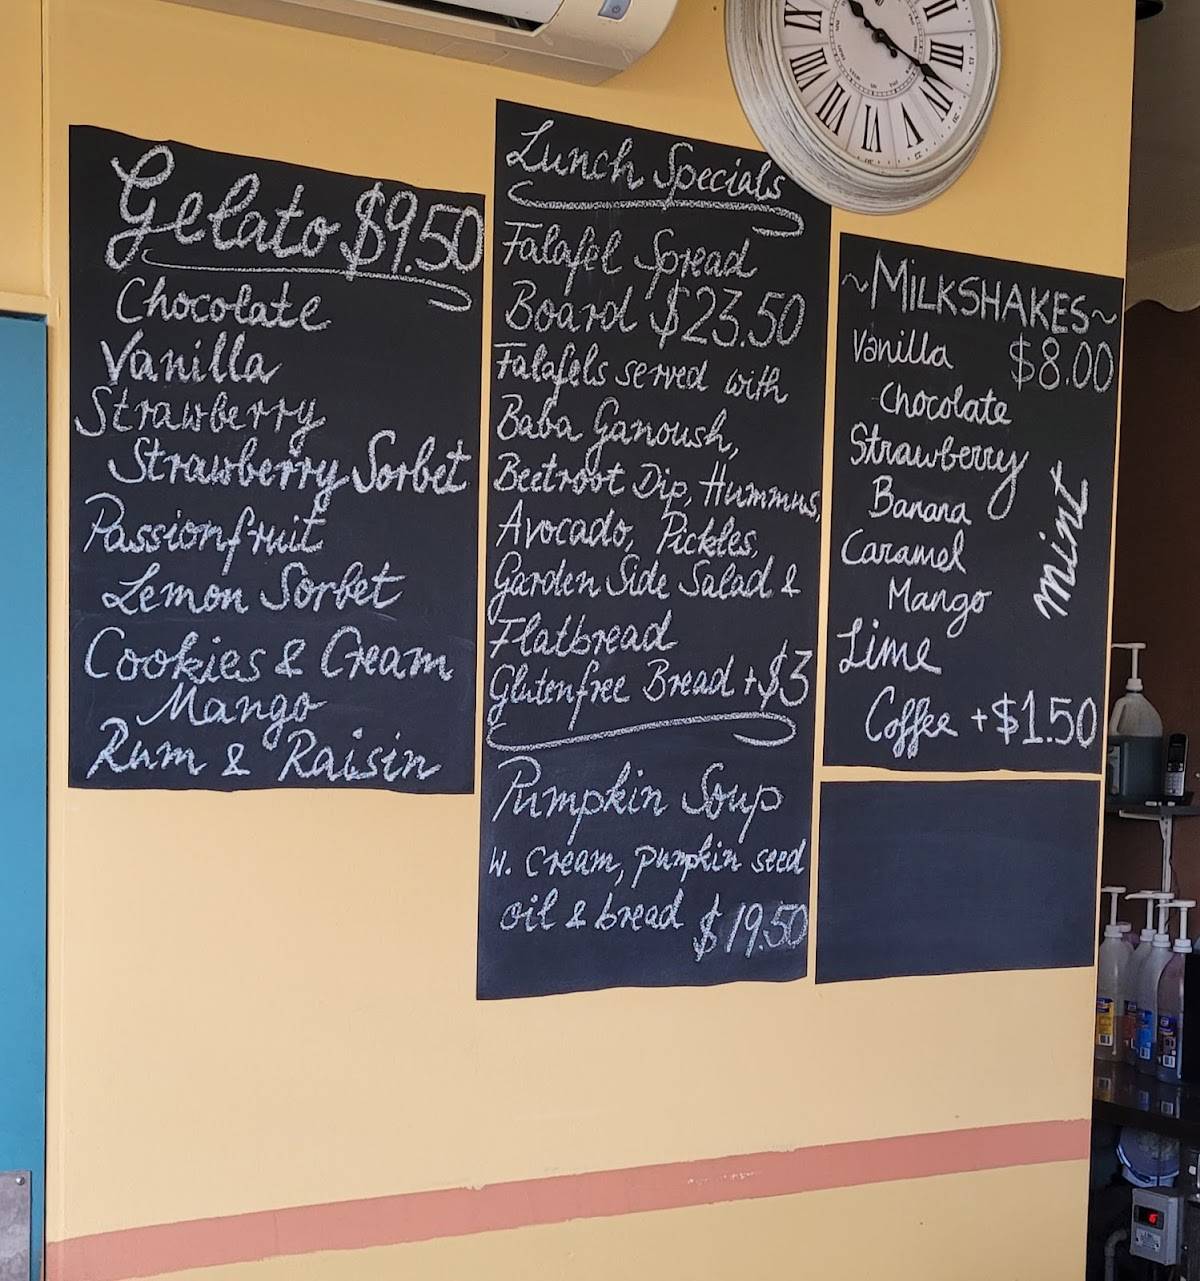 Gelato $9.50
Chocolate
Vanilla
Strawberry
Strawberry Sorbet
Passionfruit
Lemon Sorbet
Cookies & Cream
Mango
Rum & Raisin
Lunch Specials
Falafel Spread
Board $23.50
Falafels served with
Baba Ganoush,
Beetroot Dip, Hummus,
Avocado, Pickles,
Garden Side Salad &
Flatbread
Glutenfree Bread +$3
Pumpkin Soup
W. Cream, pumpkin seed
oil & bread $19.50
~MILKSHAKES~
Vanilla $8.00
Chocolate
Strawberry
Banana
Caramel
Mango
Lime
Coffee +$1.50
mint